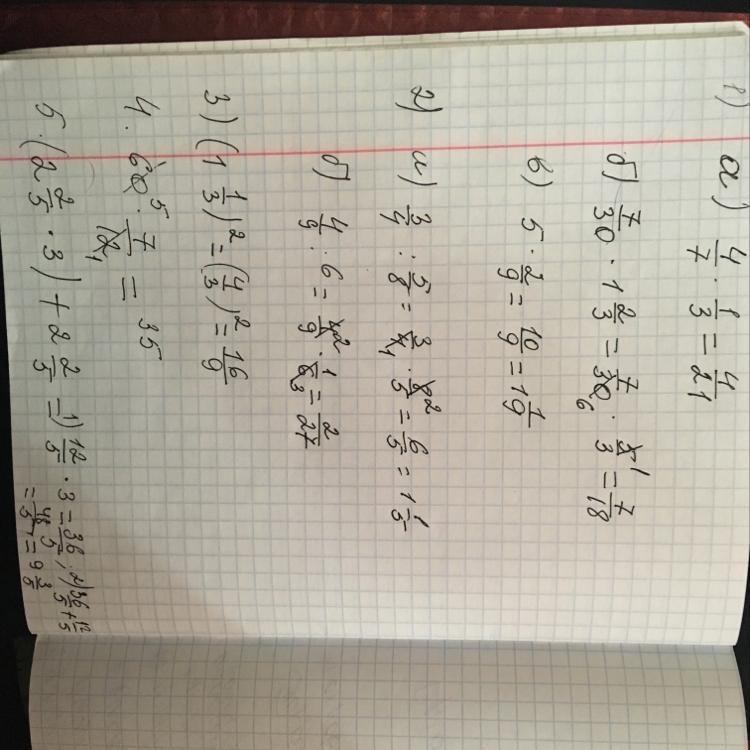 1) a) 4/7 · 1/3 = 4/21
б) 7/30 · 1 2/3 = 7/30 6 · 5 1/3 = 7/18
в) 5 · 2/9 = 10/9 = 1 1/9
2) а) 3/4 : 5/8 = 3/4 1 · 8 2/5 = 6/5 = 1 1/5
б) 4/9 : 6 = 4 2/9 · 1/6 3 = 2/27
3) (1 1/3)² = (4/3)² = 16/9
4. 60 5 · 7/12 1 = 35
5. (2 2/5 · 3) + 2 2/5 = 1) 12/5 · 3 = 36/5; 2) 36/5 + 12/5
= 48/5 = 9 3/5